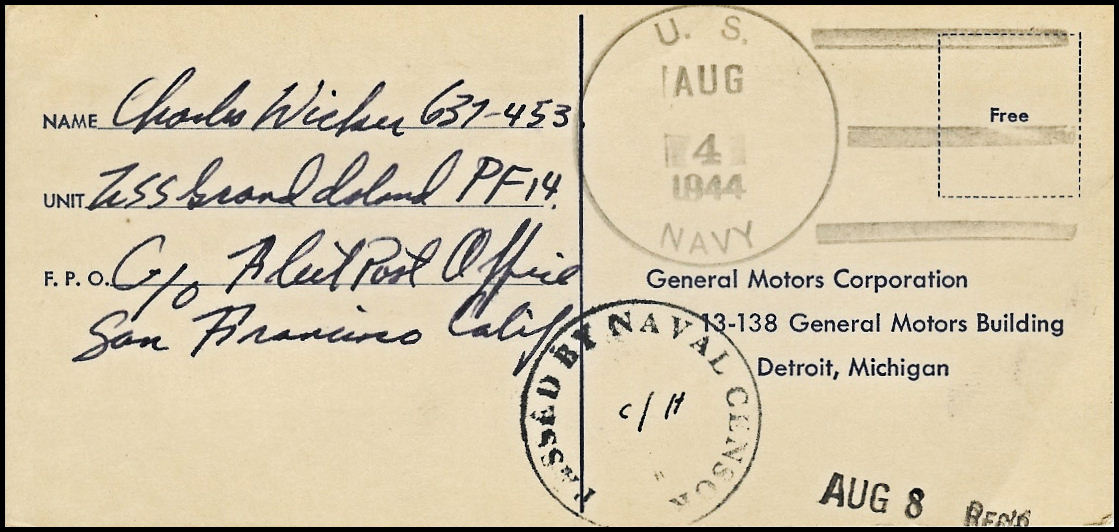 NAME Charles Wicker 637-453
UNIT USS Grand Island PF14.
F. P. O. C/o Fleet Post Office
San Francisco Calif
U. S.
AUG
4
1944
NAVY
Free
General Motors Corporation
13-138 General Motors Building
Detroit, Michigan
PASSED BY NAVAL CENSOR
C/H
AUG 8 REC'D